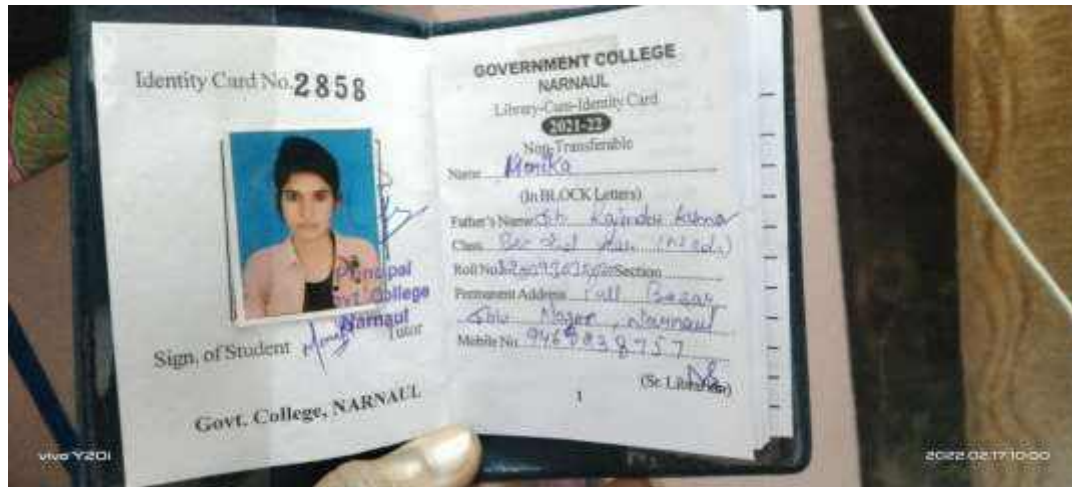 Identity Card No. 2858
Principal
Govt. College
Narnaul
Sign. of Student Tutor
Govt. College, NARNAUL
GOVERNMENT COLLEGE
NARNAUL
Library-Cum-Identity Card
2021-22
Non-Transferable
Name Monika
(In BLOCK Letters)
Father's Name Sh. Rajinder Kumar
Class
Roll No Section
Permanent Address Bazar
Nagar, Narnaul
Mobile No.
(Sr. Librarian)
1
vivo Y20i
2022.02.17 10:00